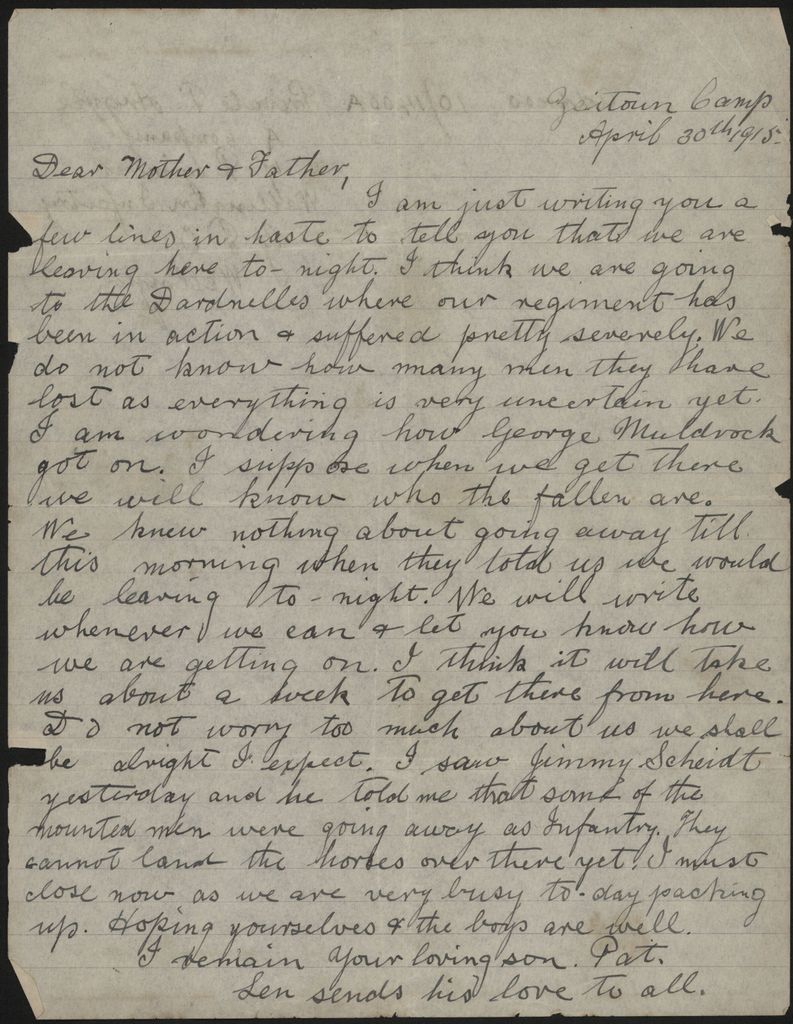 Zeitoun Camp
April 30th 1915.
Dear Mother & Father,
I am just writing you a
few lines in haste to tell you that we are
leaving here to-night. I think we are going
to the Dardnelles where our regiment has
been in action & suffered pretty severely. We
do not know how many men they have
lost as everything is very uncertain yet.
I am wondering how George Muldrock
got on. I suppose when we get there
we will know who the fallen are.
We knew nothing about going away till
this morning when they told us we would
be leaving to-night. We will write
whenever we can & let you know how
we are getting on. I think it will take
us about a week to get there from here.
Do not worry too much about us we shall
be alright I expect. I saw Jimmy Scheidt
yesterday and he told me that some of the
mounted men were going away as Infantry. They
cannot land the horses over there yet. I must
close now as we are very busy to-day packing
up. Hoping yourselves & the boys are well.
I remain Your loving son. Pat.
Len sends his love to all.